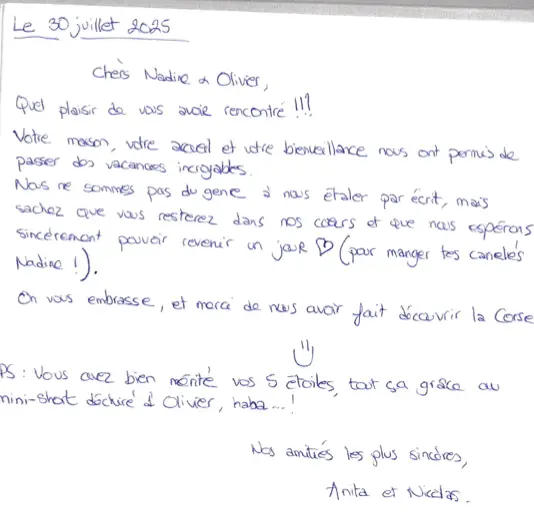 Le 30 juillet 2025
Chers Nadine & Olivier,
Quel plaisir de vous avoir rencontré !!!
Votre maison, votre accueil et votre bienveillance nous ont permis de
passer des vacances incroyables.
Nous ne sommes pas du genre à nous étaler par écrit, mais
sachez que vous resterez dans nos cœurs et que nous espérons
sincérement pouvoir revenir un jour ♡ (pour manger tes canelés
Nadine !).
On vous embrasse, et merci de nous avoir fait découvrir la Corse
PS : Vous avez bien mérité vos 5 étoiles, tout ça grâce au
mini-short déchiré d'Olivier, haha... !
Nos amitiés les plus sincères,
Anita et Nicolas.